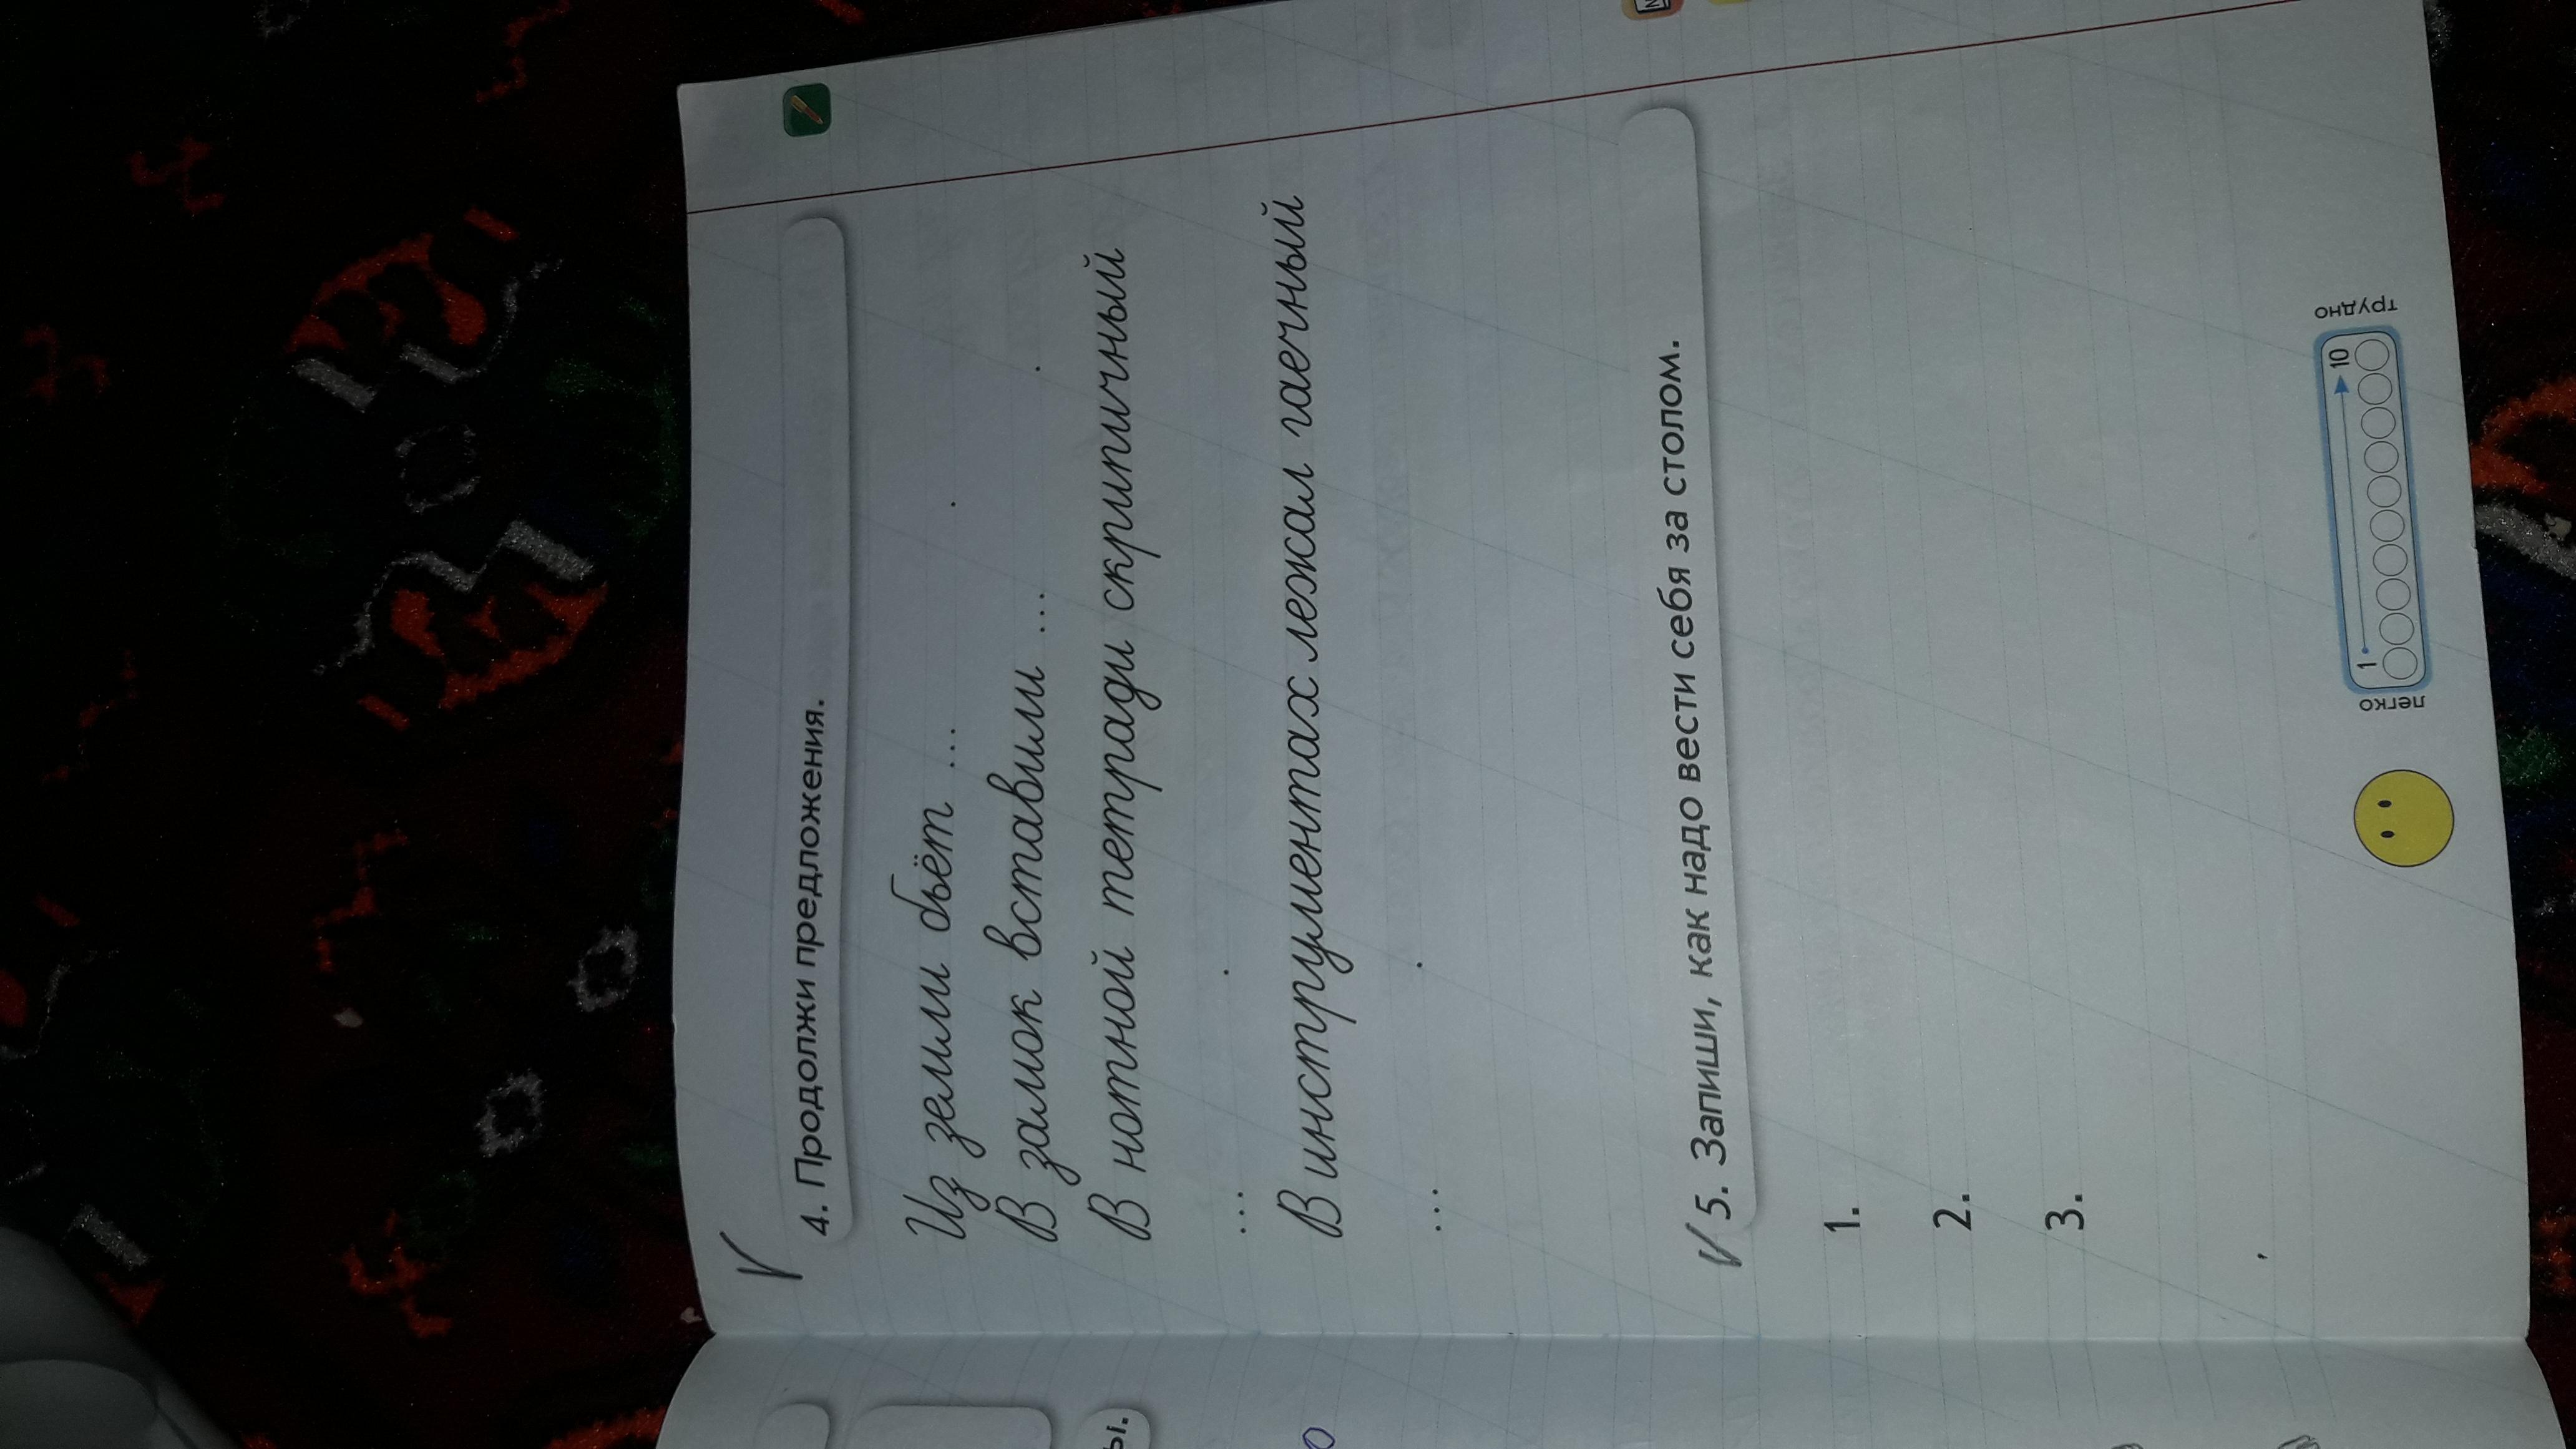 4. Продолжи предложения.
Из земли бьёт ... .
В замок вставили ... .
В нотной тетради скрипичный
... .
В инструментах лежал гаечный
... .
5. Запиши, как надо вести себя за столом.
1.
2.
3.
легко 1 10 трудно
ы.